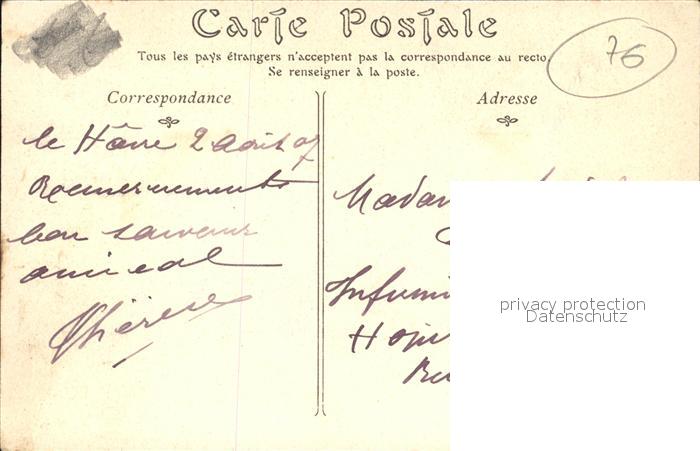 Carte Postale
Tous les pays étrangers n'acceptent pas la correspondance au recto.
Se renseigner à la poste.
76
Correspondance
Adresse
le Hâvre 2 Août 07
Remerciements
bon souvenir
amical
Thérèse
Madam
Infirmi
Hopi
privacy protection
Datenschutz